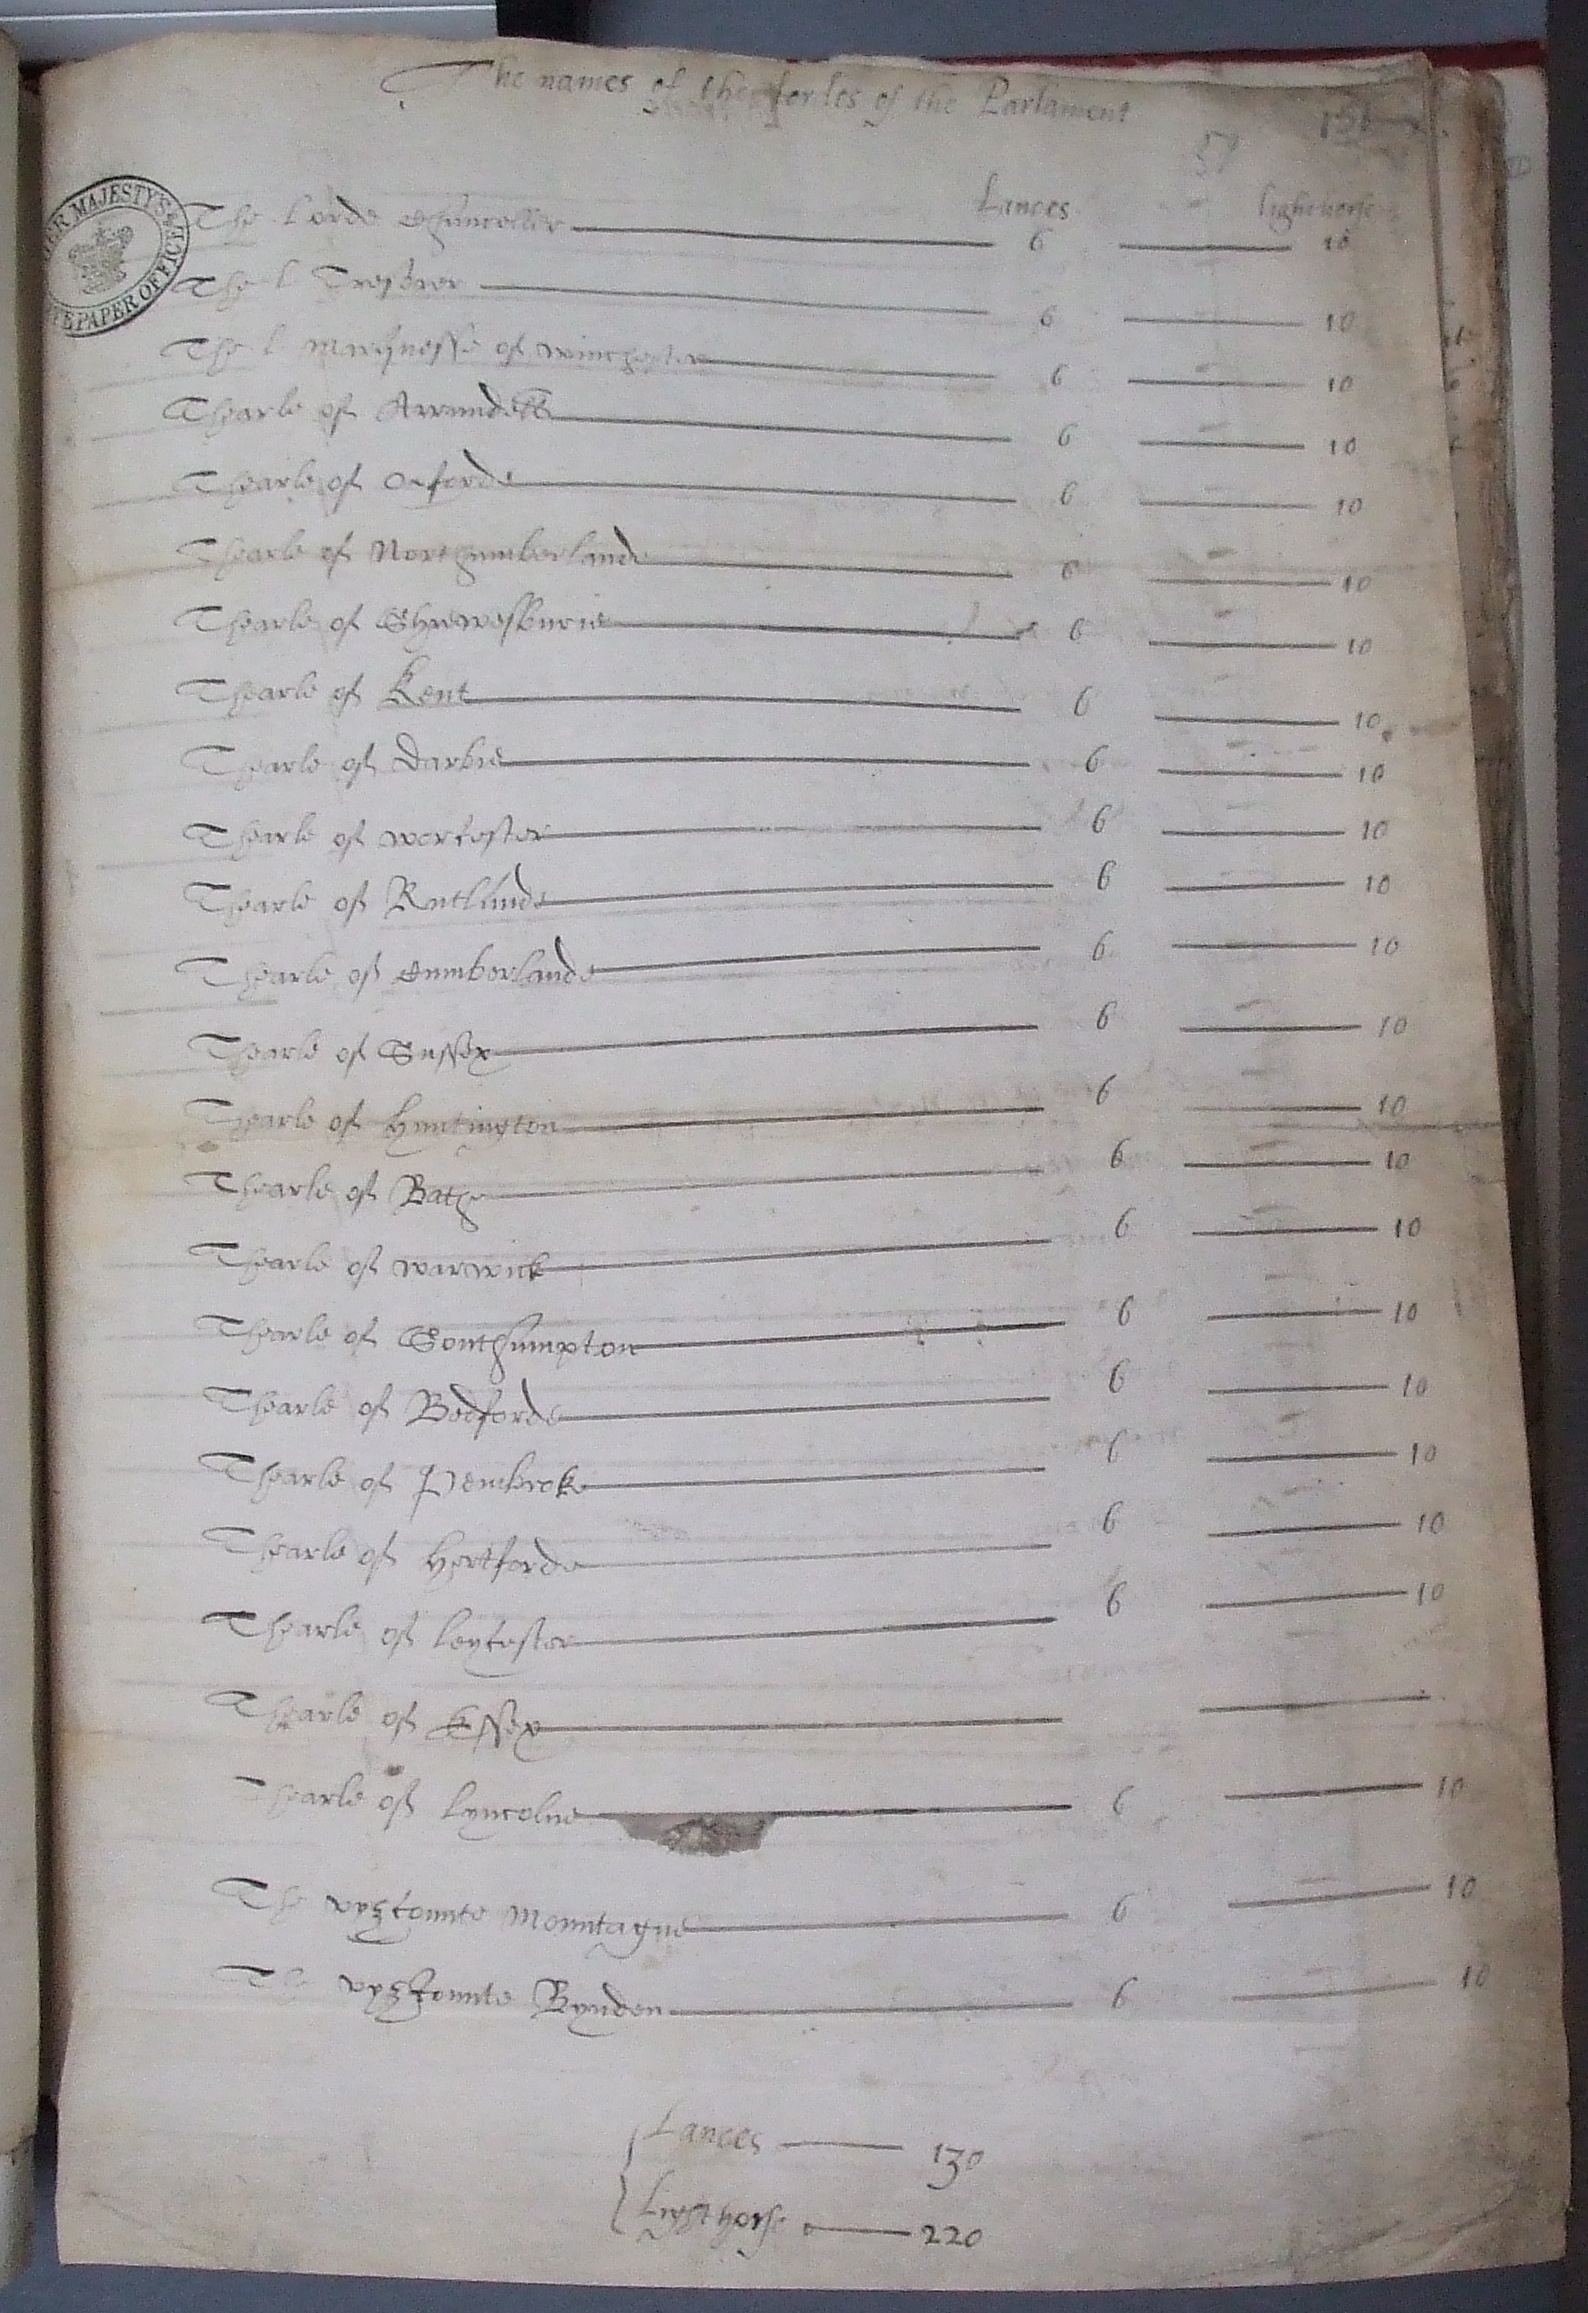 The names of the Lordes of the Parlament
151
51
Lances lighthorse
HER MAJESTY'S
STATE PAPER OFFICE
The Lorde Chauncellor 6 10
The L Tresorer 6 10
The L Marquesse of Winchester 6 10
Thearle of Arrundell 6 10
Thearle of Oxforde 6 10
Thearle of Northumberlande 6 10
Thearle of Shrewesburie 6 10
Thearle of Kent 6 10
Thearle of Darbie 6 10
Thearle of worcester 6 10
Thearle of Rutlande 6 10
Thearle of Cumberlande 6 10
Thearle of Sussex 6 10
Thearle of Huntington 6 10
Thearle of Bathe 6 10
Thearle of warwick 6 10
Thearle of Southampton 6 10
Thearle of Bedforde 6 10
Thearle of Pembroke 6 10
Thearle of Hertforde 6 10
Thearle of Leycester 6 10
Thearle of Essex
Thearle of Lyncolne 6 10
The vyzcounte Mountague 6 10
The vyzcounte Bynden 6 10
Lances 130
Lighthorse 220